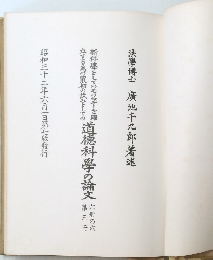 法學博士 廣池千九郎著述
新科學としてのモラロヂーを確
立する爲の最初の試みとしての
道德科學の論文
六冊の内
第三卷
昭和三十二年六月一日第七版發行